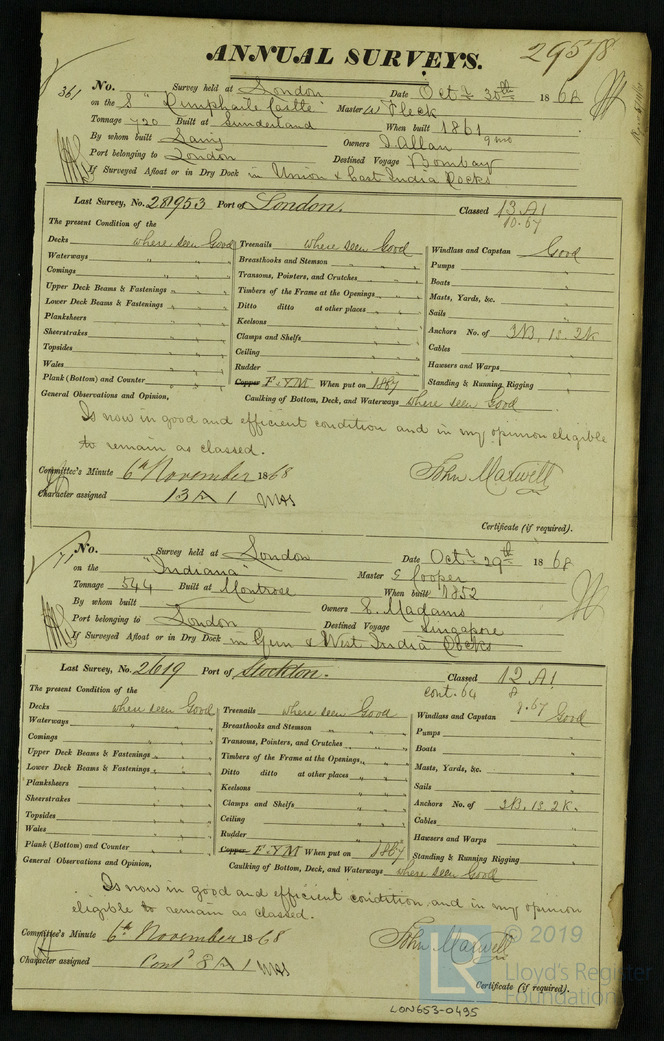 ANNUAL SURVEYS. 29578
361 No. Survey held at London Date Oct.r 30th 1868
on the S "Dumphaile Castle" Master W Fleck
Tonnage 720 Built at Sunderland When built 1861 9 mo
By whom built Laing Owners D Allan
Port belonging to London Destined Voyage Bombay
If Surveyed Afloat or in Dry Dock in Union & East India Docks
Last Survey, No. 28953 Port of London. Classed 13 A1
10.67
The present Condition of the
Decks where seen Good Treenails where seen Good Windlass and Capstan Good
Waterways " " Breasthooks and Stemson " " Pumps "
Comings " " Transoms, Pointers, and Crutches " " Boats "
Upper Deck Beams & Fastenings " " Timbers of the Frame at the Openings " " Masts, Yards, &c. "
Lower Deck Beams & Fastenings " " Ditto ditto at other places " " Sails "
Planksheers " " Keelsons " " Anchors No. of 3B, 1S. 2K
Sheerstrakes " " Clamps and Shelfs " " Cables "
Topsides " " Ceiling " " Hawsers and Warps "
Wales " " Rudder " " Standing & Running Rigging "
Plank (Bottom) and Counter " " Copper F & YM When put on 1867
General Observations and Opinion, Caulking of Bottom, Deck, and Waterways where seen Good
Is now in good and efficient condition and in my opinion eligible
to remain as classed.
Committee's Minute 6th November 1868 John Maxwell
Character assigned 13 A 1
Certificate (if required).
71 No. Survey held at London Date Oct.r 29th 1868
on the "Indiana" Master E Cooper
Tonnage 544 Built at Montrose When built 1852
By whom built Owners E. Madams
Port belonging to London Destined Voyage Singapore
If Surveyed Afloat or in Dry Dock in Gun & West India Docks
Last Survey, No. 2619 Port of Stockton. Classed 12 A1
Cont. 64 8
9.67
The present Condition of the
Decks where seen Good Treenails where seen Good Windlass and Capstan Good
Waterways " " Breasthooks and Stemson " " Pumps "
Comings " " Transoms, Pointers, and Crutches " " Boats "
Upper Deck Beams & Fastenings " " Timbers of the Frame at the Openings " " Masts, Yards, &c. "
Lower Deck Beams & Fastenings " " Ditto ditto at other places " " Sails "
Planksheers " " Keelsons " " Anchors No. of 3B. 1S. 2K.
Sheerstrakes " " Clamps and Shelfs " " Cables "
Topsides " " Ceiling " " Hawsers and Warps "
Wales " " Rudder " " Standing & Running Rigging "
Plank (Bottom) and Counter " " Copper F & YM When put on 1867
General Observations and Opinion, Caulking of Bottom, Deck, and Waterways where seen Good
Is now in good and efficient condition and in my opinion
eligible to remain as classed.
Committee's Minute 6th November 1868 John Maxwell
Character assigned Contd 8 A 1
Certificate (if required).
© 2019
LR Lloyd's Register
Foundation
LON653-0495